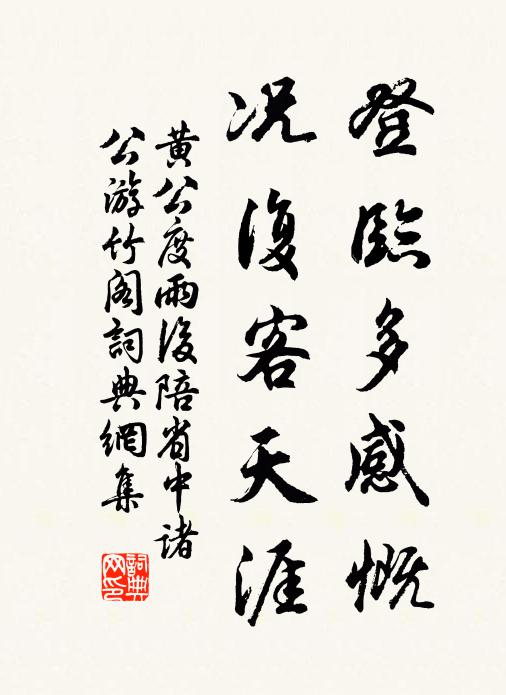 登臨多感慨
况復客天涯
黄公度雨後陪省中諸
公游竹阁詞典網集
詞典
网印